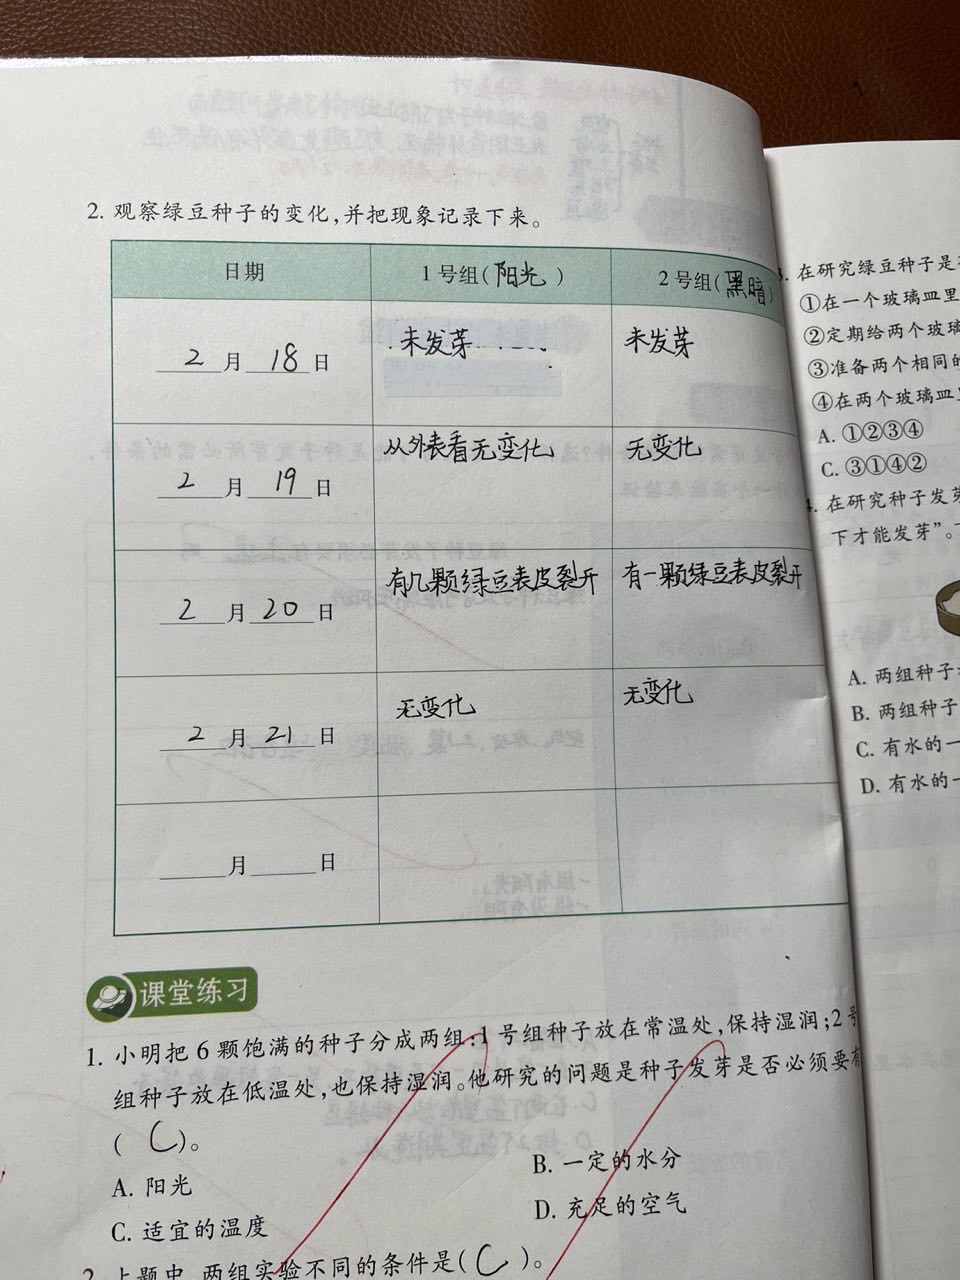 2. 观察绿豆种子的变化,并把现象记录下来。
日期 1号组(阳光) 2号组(黑暗)
2月18日 未发芽 未发芽
2月19日 从外表看无变化 无变化
2月20日 有几颗绿豆表皮裂开 有一颗绿豆表皮裂开
2月21日 无变化 无变化
月 日
课堂练习
1. 小明把6颗饱满的种子分成两组:1号组种子放在常温处,保持湿润;2号
组种子放在低温处,也保持湿润。他研究的问题是种子发芽是否必须要有
(C)。
A. 阳光 B. 一定的水分
C. 适宜的温度 D. 充足的空气
2. 上题中,两组实验不同的条件是(C)。
3. 在研究绿豆种子是
①在一个玻璃皿里
②定期给两个玻璃
③准备两个相同的
④在两个玻璃皿
A. ①②③④
C. ③①④②
4. 在研究种子发芽
下才能发芽”。
A. 两组种子
B. 两组种子
C. 有水的一
D. 有水的一